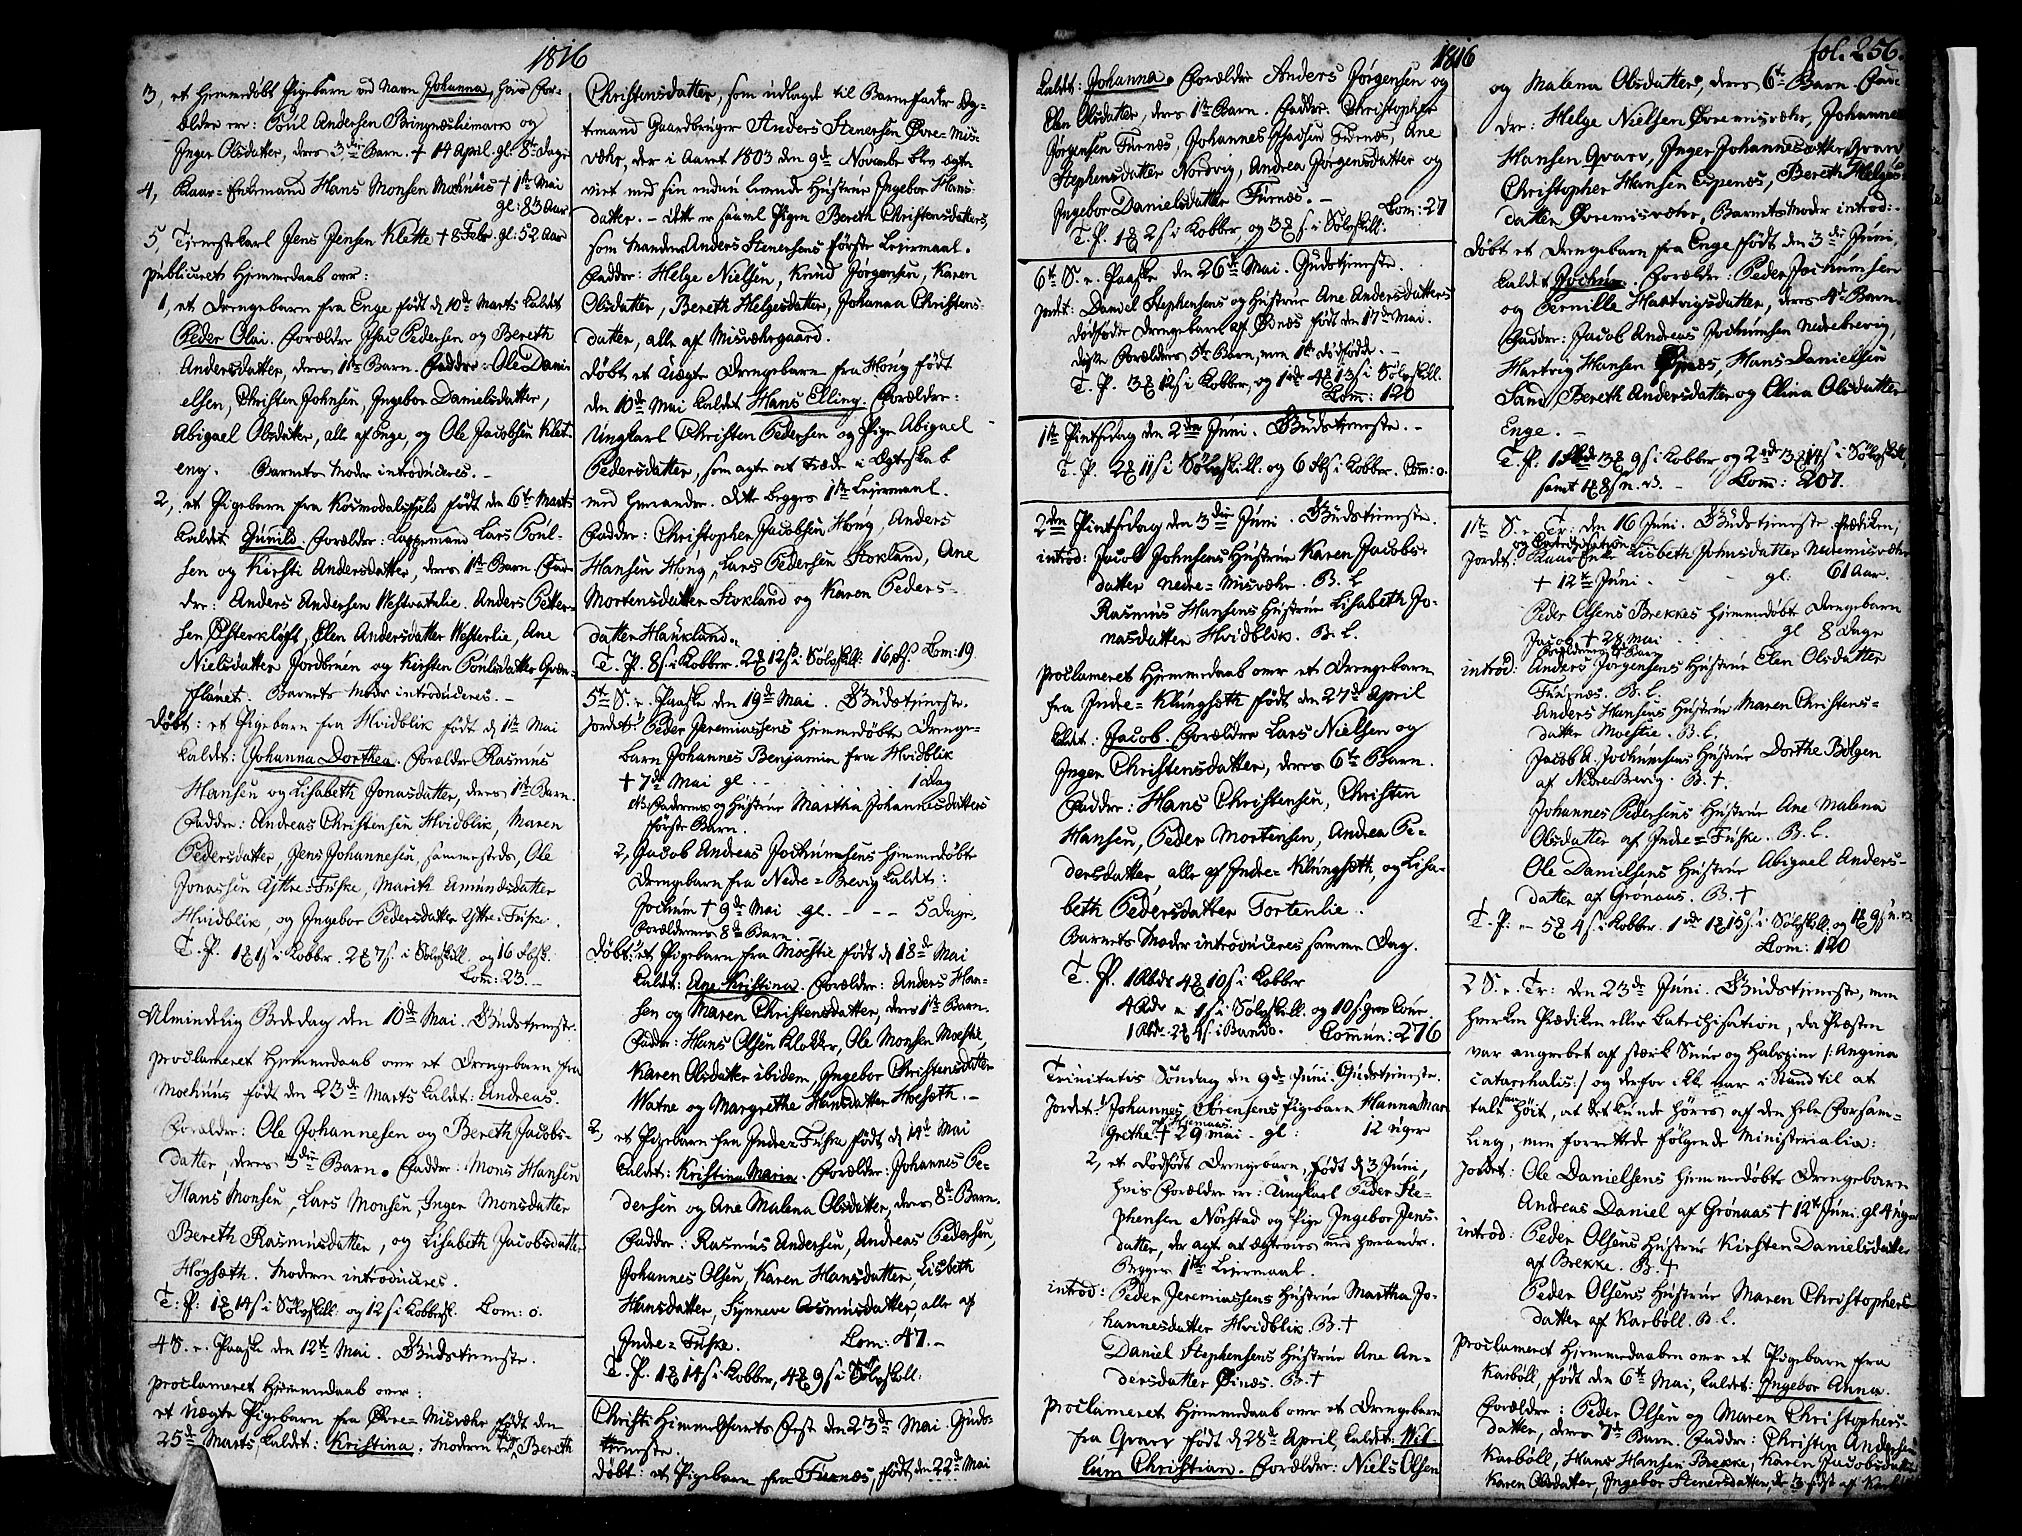 1816
3, et hjemmedöbt Pigebarn ved Navn Johanna, hvis For-
ældre ere: Poul Andersen Bringnæslimark og
Inger Olsdatter, deres 3die Barn. + 14 April gl. 8te Dage
4, Kaar-Enkemand Hans Monsen Moknæs + 1te Mai
gl: 83 Aar
5 Tjenstekarl Jens Jensen Klette + 8 Febr. gl: 52 Aar
publiceret Hjemmedaab over:
1, et Drengebarn fra Enge födt d. 10de Marts kaldet
Peder Olai. Forældre Esai Pedersen og Bereth
Andersdatter, deres 1te Barn. Faddre: Ole Dani-
elsen, Christen Johnsen, Ingebor Danielsdatter,
Abigael Olsdatter, alle af Enge, og Ole Jacobsen Klet-
eng. Barnets Moder introduceres. -
2, et Pigebarn fra Kosmodalsfjeld födt den 6te Marts
kaldet Gunild. Forældre: Lappemand Lars Poul-
sen og Kirsti Andersdatter, deres 1te Barn Fad-
dre: Anders Andersen Westvatnlie. Anders Peder-
sen Österklöft, Elen Andersdatter Westerlie, Ane
Nielsdatter Jordbruen og Kirsten Poulsdatter Grön-
flaaet. Barnets Moder introduceres. -
Döbt: et Pigebarn fra Hvidblik födt d. 1te Mai
kaldet: Johanna Dorthea. Forældre Rasmus
Hansen og Lisabeth Jonasdatter, deres 1te Barn.
Faddre: Andreas Christensen Hvidblik, Maren
Pedersdatter, Jens Johannesen, sammesteds, Ole
Jonassen Yttre-Fuske, Marith Amundsdatter
Hvidblik, og Ingebor Pedersdatter Yttre-Fuske.
T. P. 1 1 s i Kobber. 2 7 s. i Sölvskill. og 16
Com: 23. -
Almindelig Bededag den 10de Mai. Gudstjeneste.
proclameret Hjemmedaab over et Drengebarn fra
Moknæs födt den 23de Marts kaldet: Andreas.
Forældre: Ole Johannesen og Bereth Jacobs-
datter, deres 3die Barn. Faddre: Mons Hansen
Hans Monsen, Lars Monsen, Inger Monsdatter
Bereth Rasmusdatter, og Lisabeth Jacobsdatter
Högsæth. Modren introduceres.
T: P: 1 14 s i Sölvskill. og 12 s i Kobbersk. Com: 0.
4 S. e. Paaske den 12te Mai. Gudstjeneste.
proclameret Hjemmedaab over:
et uægte Pigebarn fra Övre-Misvær födt den
25de Marts kaldet: Kristina. Modren Bereth
Christensdatter, som udlagde til Barnefader Eg-
temand Gaardbruger Anders Stenersen Övre-Mis-
vær, der i Aaret 1803 den 9de Novembr blev ægte
viet med sin endnu levende Hustrue Ingebor Hans-
datter. - Dette er saavel Pigen Bereth Christensdatters,
som Manden Anders Stenersens förste Lejermaal.
Faddre: Helge Nielsen, Knud Jörgensen, Karen
Olsdatter, Bereth Helgesdatter, Johanna Christens-
datter, alle af Misværgaard.
Döbt et Uægte Drengebarn fra Höug födt
den 10de Mai kaldet Hans Elling. Forældre:
Ungkarl Christen Pedersen og Pige Abigael
Pedersdatter, som agte at træde i Ægteskab
med hverandre. Dette begges 1te Lejermaal.
Faddre: Christopher Jacobsen Höug, Anders
Hansen Höug, Lars Pedersen Stokland, Ane
Mortensdatter Stokland og Karen Peders-
datter Haukland.
T. P. 8 s i Kobber. 2 12 s i Sölvskill: 16 Com: 19.
5te S. e. Paaske den 19de Mai. Gudstjeneste.
Jordet: 1 Peder Jeremiassens hjemmedöbte Drenge-
barn Johannes Benjamin fra Hvidblik
+ 7de Mai gl - - 1 dag
Faderens og Hustrue Martha Johannesdatters
förste Barn.
2, Jacob Andreas Jochumsens hjemmedöbte
Drengebarn fra Nedre-Brevig kaldet:
Jochum + 9de Mai gl. - - - 5 Dage.
Forældrenes 8de Barn
Döbt: 1 et Pigebarn fra Moestie födt d 18de Mai
kaldet: Ane Kristina. Forældre: Anders Han-
sen og Maren Christensdatter, deres 1te Barn.
Faddre: Hans Olsen Klokker, Ole Monsen Moestie,
Karen Olsdatter ibidem, Ingebor Christensdatter
Watne og Margrethe Hansdatter Hoesæth. -
2, et Pigebarn fra Indre-Fuske födt d. 14de Mai
kaldet: Kristina Maria. Forældre: Johannes Pe-
dersen og Ane Malena Olsdatter, deres 8de Barn.
Faddre: Rasmus Andersen, Andreas Pedersen,
Johannes Olsen, Karen Hansdatter, Lisbeth
Hansdatter, Synneve Asmusdatter, alle af
Indre-Fuske. Com: 47. -
T. P. 1 14 s i Kobber, 4 9 s i Sölvskill:
Christi Himmelfarts Fest den 23de Mai. Guds-
tjeneste.
Döbt: et Pigebarn fra Furnæs, födt den 22de Mai
1816 fol. 256.
kaldet: Johanna. Forældre Anders Jörgensen og
Elen Olsdatter, deres 1te Barn. Faddre: Christopher
Jörgensen Furnæs, Johannes Furnæs, Ane
Stephensdatter Nordvig, Andrea Jörgensdatter og
Ingebor Danielsdatter Furnæs. - Com: 27
T. P. 1 2 s i Kobber, og 3 s i Sölvskill:
6te S. e. Paaske den 26de Mai. Gudstjeneste.
Jordet: Daniel Stephensens og Hustrue Ane Andersdatters
dödfödde Drengebarn af Öinæs födt den 17de Mai.
disse Forældres 5te Barn, men 1te dödfödde. -
T. P. 3 12 s i Kobber, og 4 13 s. i Sölvskill.
Com: 120
1te Pintsdag den 2den Juni. Gudstjeneste. -
T. P. 2 11 s i Sölvskill. og 6 s i Kobber. Com: 0.
2den Pintsdag den 3die Juni. Gudstjeneste.
introd: Jacob Johnsens Hustrue Karen Jacobs-
datter Nedre-Misvær. B. L
Rasmus Hansens Hustrue Lisabeth Jo-
nasdatter Hvidblik. B. L.
proclameret Hjemmedaab over et Drengebarn
fra Indre-Klungsæth födt den 27de April
kaldet: Jacob. Forældre Lars Nielsen og
Inger Christensdatter, deres 6te Barn.
Faddre: Hans Christensen, Christen
Hansen, Peder Mortensen, Andrea Pe-
dersdatter alle af Indre-Klungsæth, og Lisa-
beth Pedersdatter Tortenlie.
Barnets Moder introduceres samme Dag.
T. P. 1 Rbd 4 10 s i Kobber
4 Rdr 1 s i Sölvskill. og 10 s. grov Cour.
1 Rbdr. 2 4 s i Banco. Commun: 276
Trinitatis Söndag den 9de Juni. Gudstjeneste.
Jordet: 1 Johannes Sörensens Pigebarn Hanna Mar
Grethe af Hjemaas + 29 Mai - gl: 12 uger
2, et dödfödt Drengebarn, födt d. 3 Juni,
hvis Forældre ere: Ungkarl Peder Ste-
phensen Nörstad og Pige Ingebor Jens-
datter, der agte at ægtevies med hverandre.
Begges 1te Lejermaal.
introd: Peder Jeremiassens Hustrue Martha Jo-
hannesdatter Hvidblik. B. +
Daniel Stephensens Hustrue Ane An-
dersdatter Öinæs. B. +
proclameret Hjemmedaab over et Drengebarn
fra Qvarv födt d 28de April, kaldet: Wil-
lum Christian. Forældre: Niels Olsen
1816
og Malena Olsdatter, deres 6te Barn. Fad-
dre: Helge Nielsen Övremisvær, Johannes
Hansen Qvarv, Inger Johannesdatter Qvarv
Christopher Hansen Espenæs, Bereth Helges-
datter Övremisvær, Barnets Moder introd: -
Döbt et Drengebarn fra Enge födt den 3die Juni,
kaldet Jochum. Forældre: Peder Jochumsen
og Pernille Hartvigsdatter, deres 4de Barn
Faddre: Jacob Andreas Jochumsen Nedrebrevig,
Hartvig Hansen Öynæs, Hans Danielsen
Sand, Bereth Andersdatter og Elina Olsdatter
Enge. -
T. P: 1 Rbd 3 9 s i Kobber, og 2 3 14 s i Sölvskill,
samt 1 8 s n. v. - Com: 207.
1te S. e. Tr: den 16 Juni. Gudstjeneste. Prædiken,
og Catechisation
Jordet: Kaar Enke Lisbeth Johnsdatter Nedremisvær
+ 12te Juni - - gl: 61 Aar.
Peder Olsens Brekkes hjemmedöbte Drengebarn
Jacob + 28 Mai gl 8 Dage
introd: Anders Jörgensens Hustrue Elen Olsdatter
Furnæs. B. L.
Anders Hansens Hustrue Maren Christens-
datter Moestie. B. L.
Jacob A. Jochumsens Hustrue Dorthe Bölgen
af Nedre Brevig. B. +.
Johannes Pedersens Hustrue Ane Malena
Olsdatter af Indre-Fuske. B. L.
Ole Danielsens Hustrue Abigael Anders-
datter af Grönaas. B. +
T. P: - 5 4 s. i Kobber. 1 1 13 s. i Sölvskill. og 1 9 s n. v.
Com: 120
2 S. e. Tr: den 23de Juni. Gudstjeneste, men
hverken Prædiken eller Catechisation, da Præsten
var angrebet af stærk Snue og Halssyge /: Angina
catarrhalis :/ og derfor ikke var i Stand til at
tale saa höit, at det kunde höres af den hele Forsam-
ling, men forrettede fölgende Ministerialia:
Jordet: Ole Danielsens hjemmedöbte Drengebarn
Andreas Daniel af Grönaas + 12te Juni. gl 4 uger
introd: Peder Olsens Hustrue Kirsten Danielsdatter
af Brekke. B. +
Peder Olsens Hustrue Maren Christophers-
datter af Karböll. B. L.
proclameret Hjemmedaaben over et Pigebarn fra
Karböll, födt den 6te Mai, kaldet: Ingebor Anna.
Forældre: Peder Olsen og Maren Christophers-
datter, deres 7de Barn. Faddre: Christen Andersen
Karböll, Hans Hansen Brekke, Karen Jacobsdatter
Karen Olsdatter, Ingebor Stenersdatter, de 3 sidst af Karböll